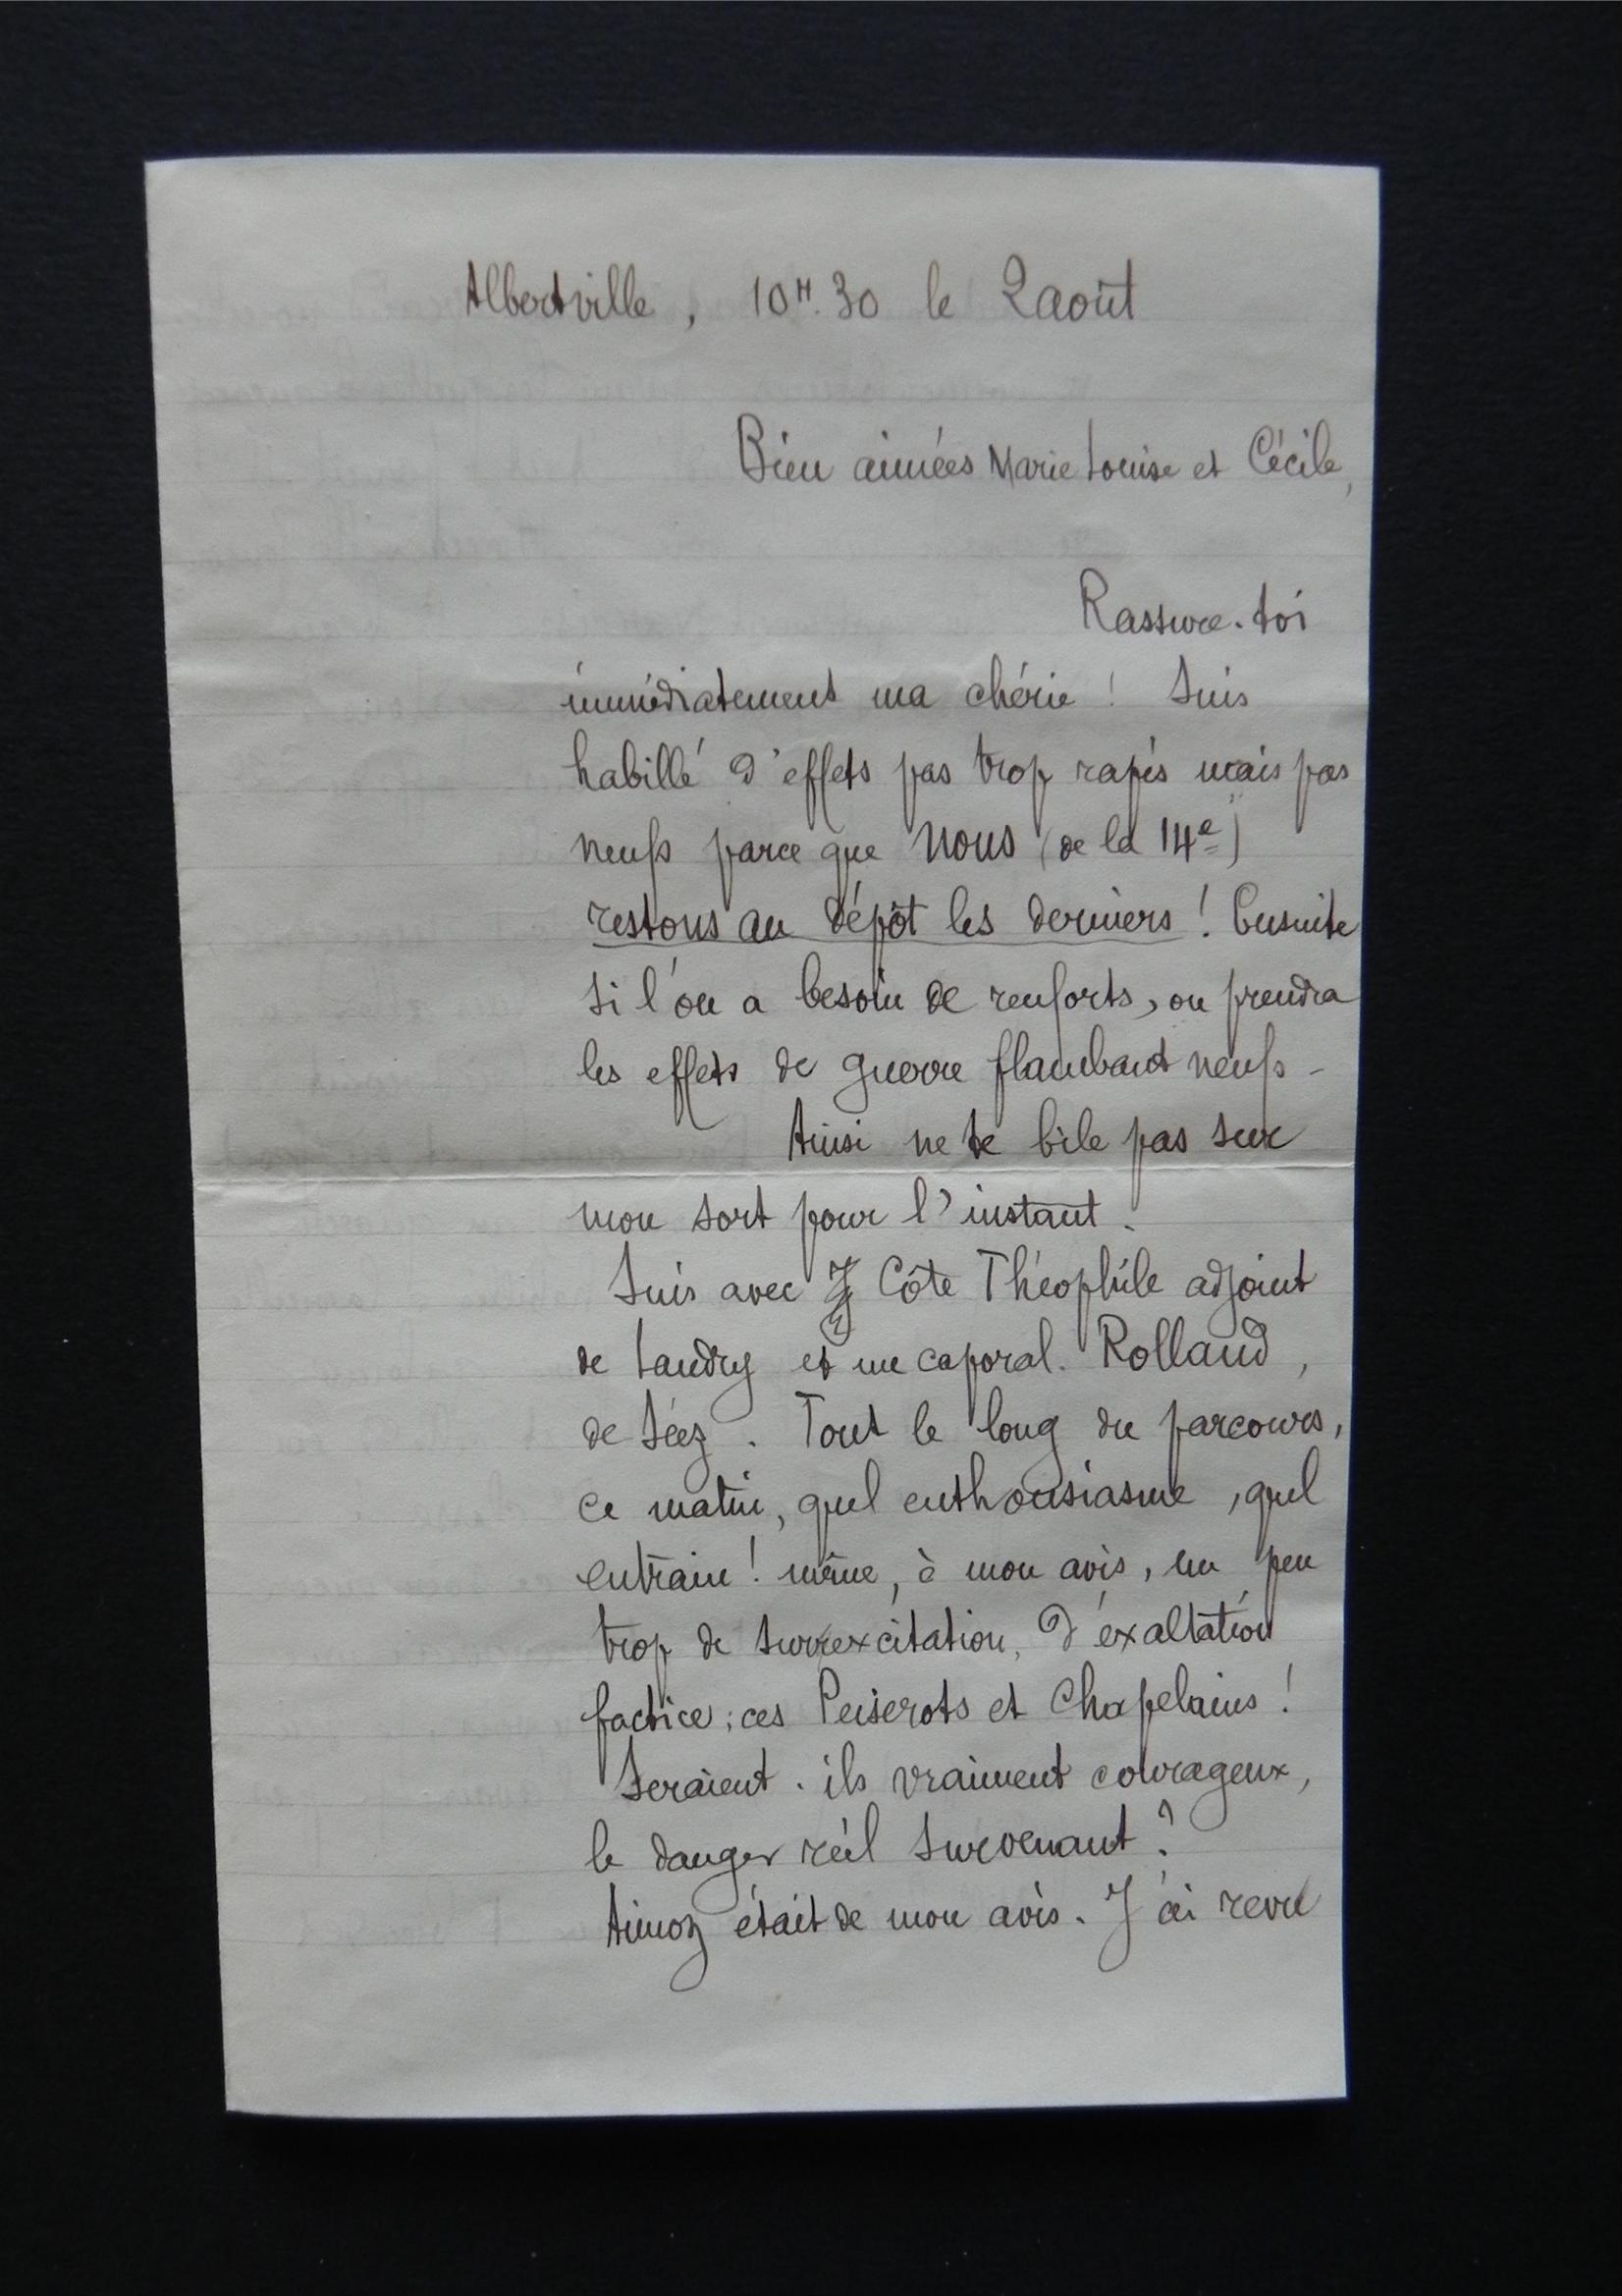 Albertville, 10H.30 le 2 août
Bien aimées Marie Louise et Cécile,
Rassure-toi
immédiatement ma chérie ! Suis
habillé d'effets pas trop rapés mais pas
neufs parce que nous (de la 14e)
restons au dépôt les derniers ! Ensuite
si l'on a besoin de renforts, on prendra
les effets de guerre flambant neufs -
Ainsi ne te bile pas sur
mon sort pour l'instant.
Suis avec Côte Théophile adjoint
de Landry et un caporal. Rolland,
de Séez. Tout le long du parcours,
ce matin, quel enthousiasme, quel
entrain ! même, à mon avis, un peu
trop de surrexcitation, d'éxaltation
factice ; ces Peiserots et Chapelains !
Seraient-ils vraiment courageux,
le danger réel survenant ?
Aimoz était de mon avis. J'ai revu